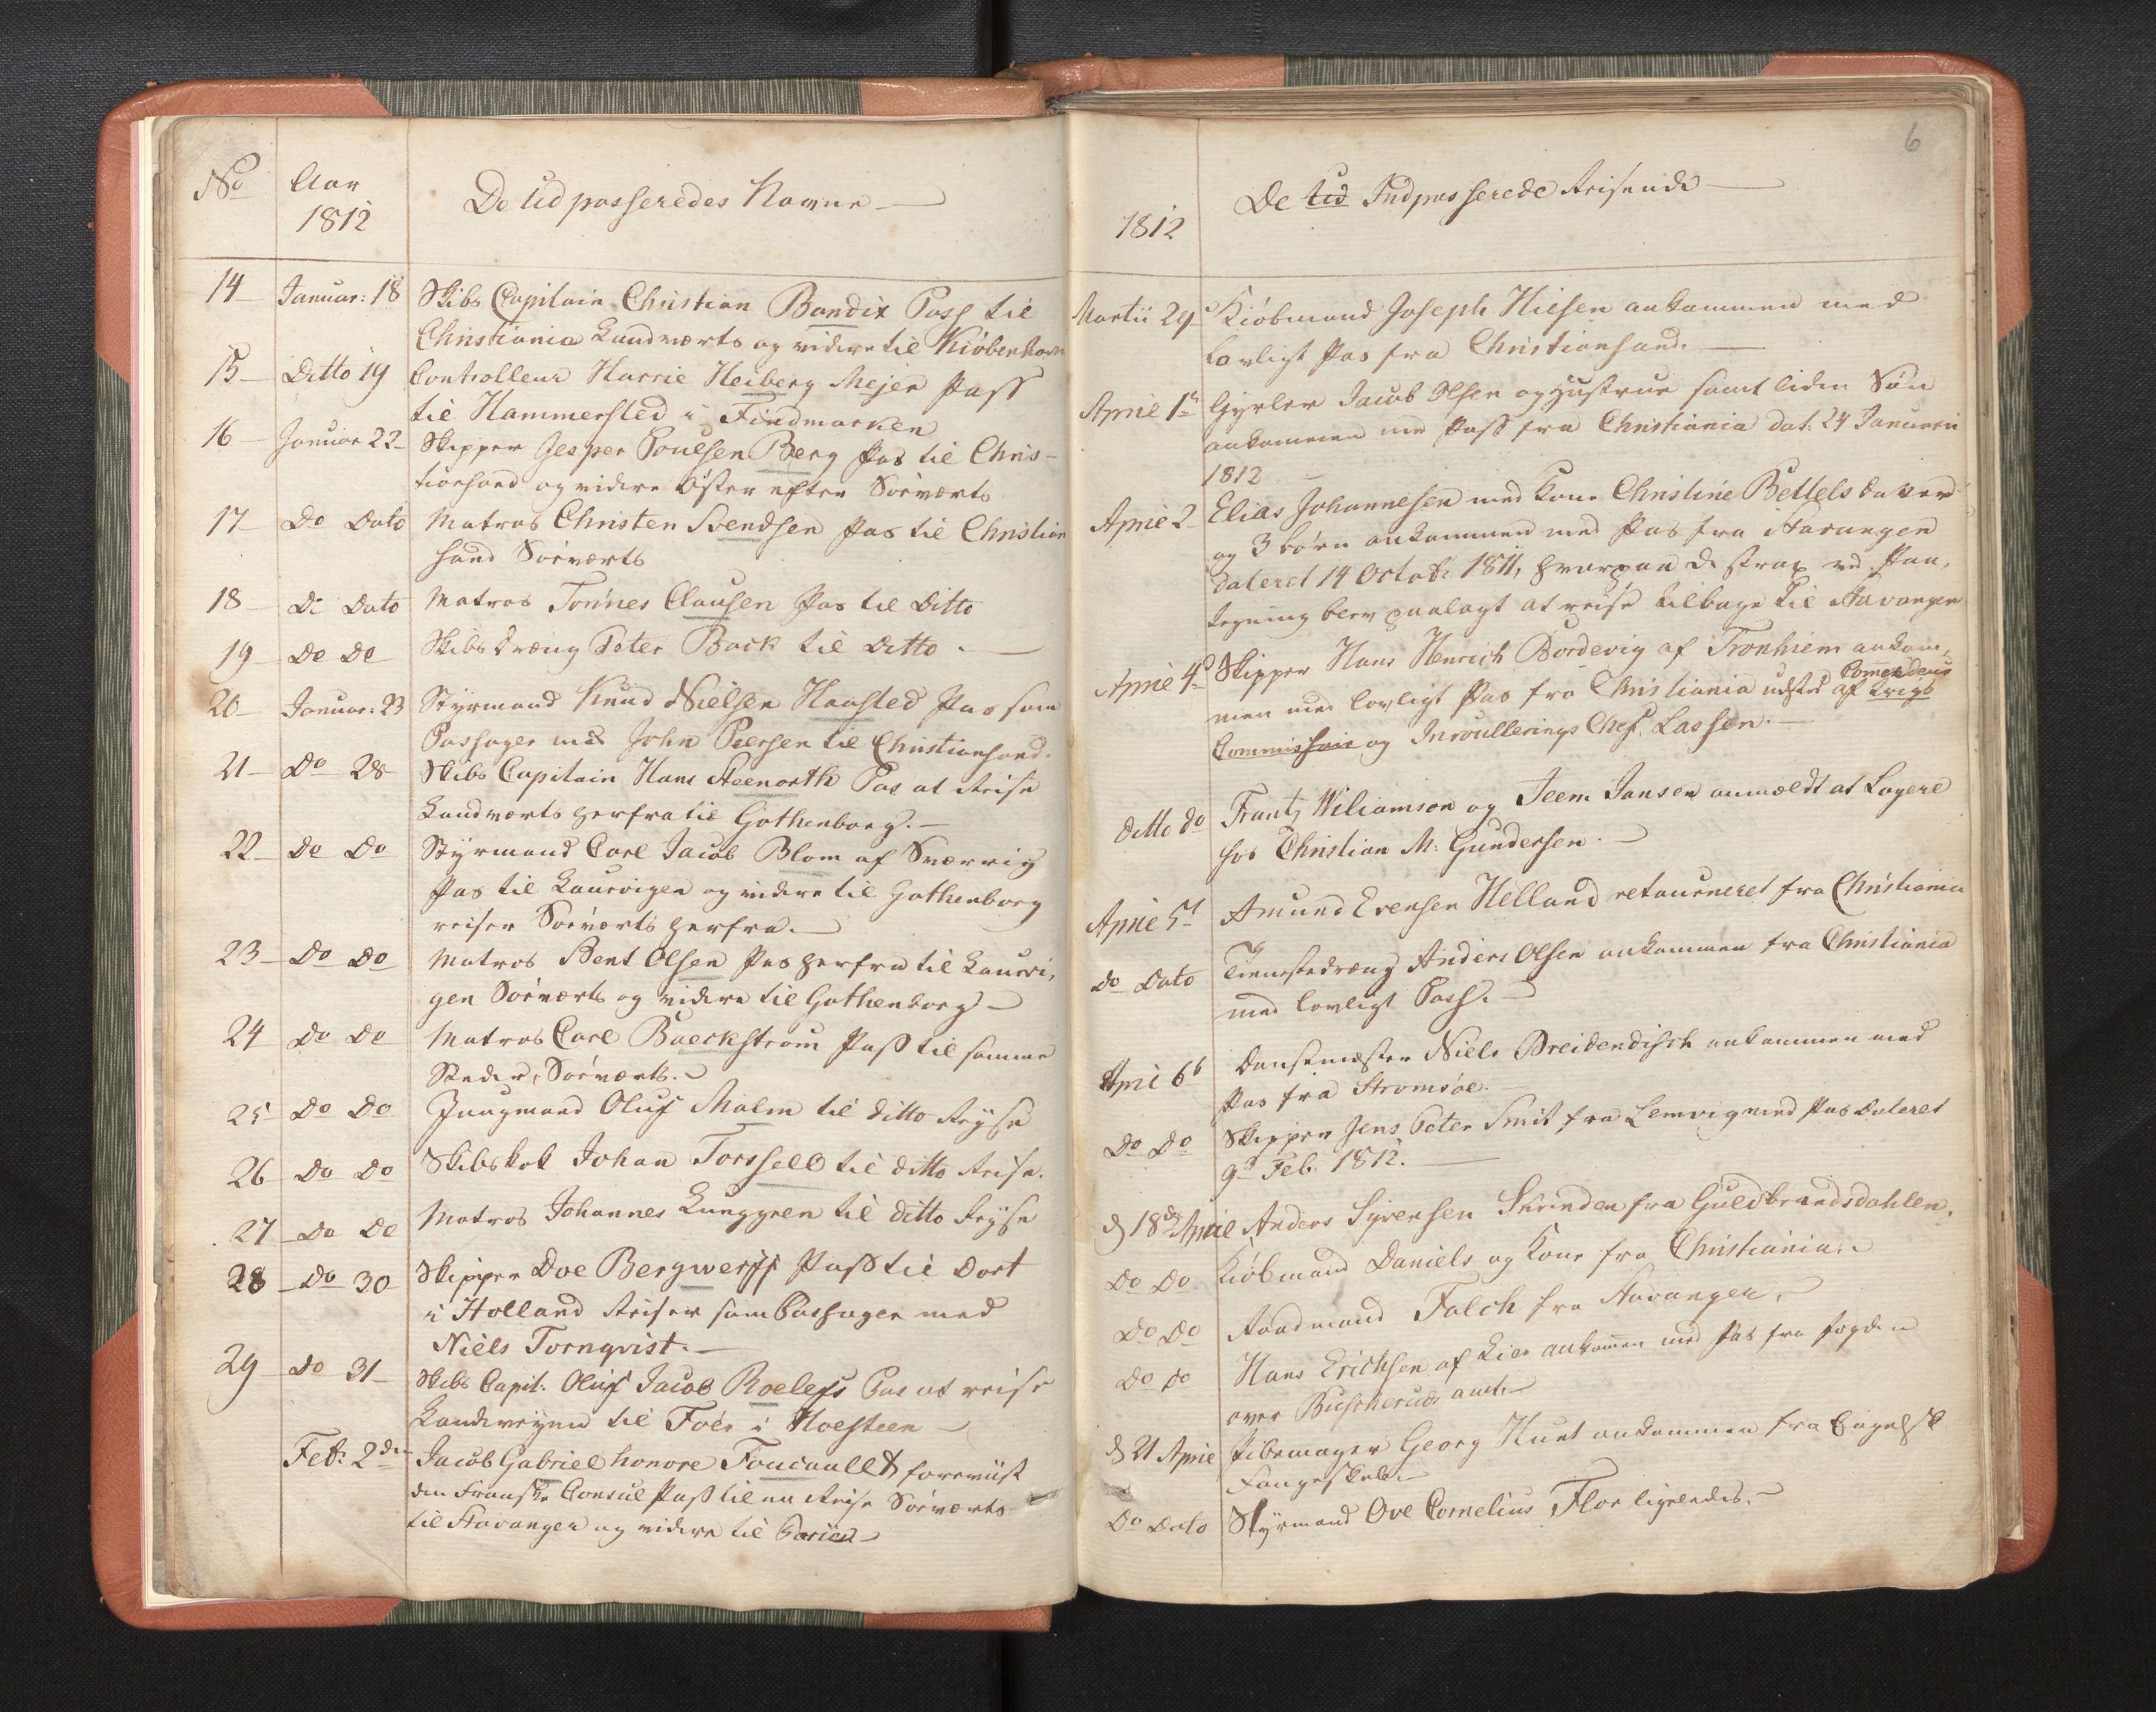 No Aar De Udpasseredes Navne
1812
14 Januar: 18 Skibs Capitain Christian Bandix Pass til
Christiania Landværts og videre til Kiöbenhavn
15 Ditto 19 Controlleur Harrie Heiberg Mejer Pass
til Hammersted i Findmarken
16 Januar 22 Skipper Jesper Poulsen Berg Pas til Chris-
tiansand og videre Öster efter Söeværts
17 Do Dato Matros Christen Svendsen Pas til Christian
sand Söeværts
18 Do Dato Matros Tönnes Clausen Pas til Ditto
19 Do Do Skibsdreng Peter Back til Ditto
20 Januar: 23 Styrmand Knud Nielsen Haasted Pas som
Passager med John Peersen til Christiansand.
21 Do 28 Skibs Capitain Hans Steenorth Pas at Reise
Landværts herfra til Gothenborg.
22 Do Do Styrmand Carl Jacob Blom af Sverrig
Pas til Laurvigen og videre til Gothenborg
reiser Söeværts herfra.
23 Do Do Matros Bent Olsen Pas herfra til Laurvi,
gen Söeværts og videre til Gothenborg
24 Do Do Matros Carl Baeckstrøm Pass til samme
Steder, Söeværts.
25 Do Do Jungmand Oluf Malm til ditto Reyse
26 Do Do Skibskok Johan Torssell til ditto Reise.
27 Do Do Matros Johannes Lunggren til ditto Reyse
28 Do 30 Skipper Doe Bergwerff Pass til Dort
i Holland Reiser som Passager med
Niels Tornqvist.
29 Do 31 Skibs Capit: Oluf Jacob Roelefs Pas at reise
Landeveyen til Föer i Holsteen
Feb: 2de Jacob Gabriel honore Foucault foreviist
den Franske Consul Pass til en Reise Söeværts
til Stavanger og videre til Pariis
6
1812 De Ud Indpasserede Reisende
Martii 29 Kiöbmand Joseph Nielsen ankommen med
Lovligt Pas fra Christiansand.
April 1 Gyrtler Jacob Olsen og Hustrue samt liden Sön
ankommen med Pass fra Christiania dat. 24 Januarii
1812
April 2 Elias Johannesen med Kone Christine Bettels daater
og 3 börn ankommen med Pas fra Stavanger
dateret 14 Octobr 1811, hvorpaa de strax ved Paa,
tegning blev paalagt at reise tilbage til Stavanger
April 4 Skipper Hans Henrich Bordevig af Tronhiem ankom,
men med lovligt Pas fra Christiania udsted af Krigs
Comendeur
Commissair og Inroullerings Chef. Lassen.
ditto do Frantz Wiliamson og Jeem Jansen anmeldt at Logere
hos Christian M: Gundersen.
April 5 Amund Evensen Helland retourneret fra Christiania
do Dato Tienestedreng Anders Olsen ankommen fra Christiania
med lovligt Pass.
April 6 Dansemester Niels Breidendisch ankommen med
Pas fra Stromsöe.
Do Do Skipper Jens Peter Smit fra Lemvig med Pas Dateret
9 Feb. 1812.
d 18de April Anders Syversen Skrinden fra Guldbrandsdahlen.
Do Do Kiöbmand Daniels og Kone fra Christiania.
Do Do Raadmand Falch fra Stavanger.
Do Do Hans Erichsen af Lier ankommen med Pas fra fogden
over Buscheruds amt.
d 21 April Pibemager Georg Hunt ankommen fra Engelsk
Fangeskab.
Do Dato Styrmand Ove Cornelius Flor ligeledes.